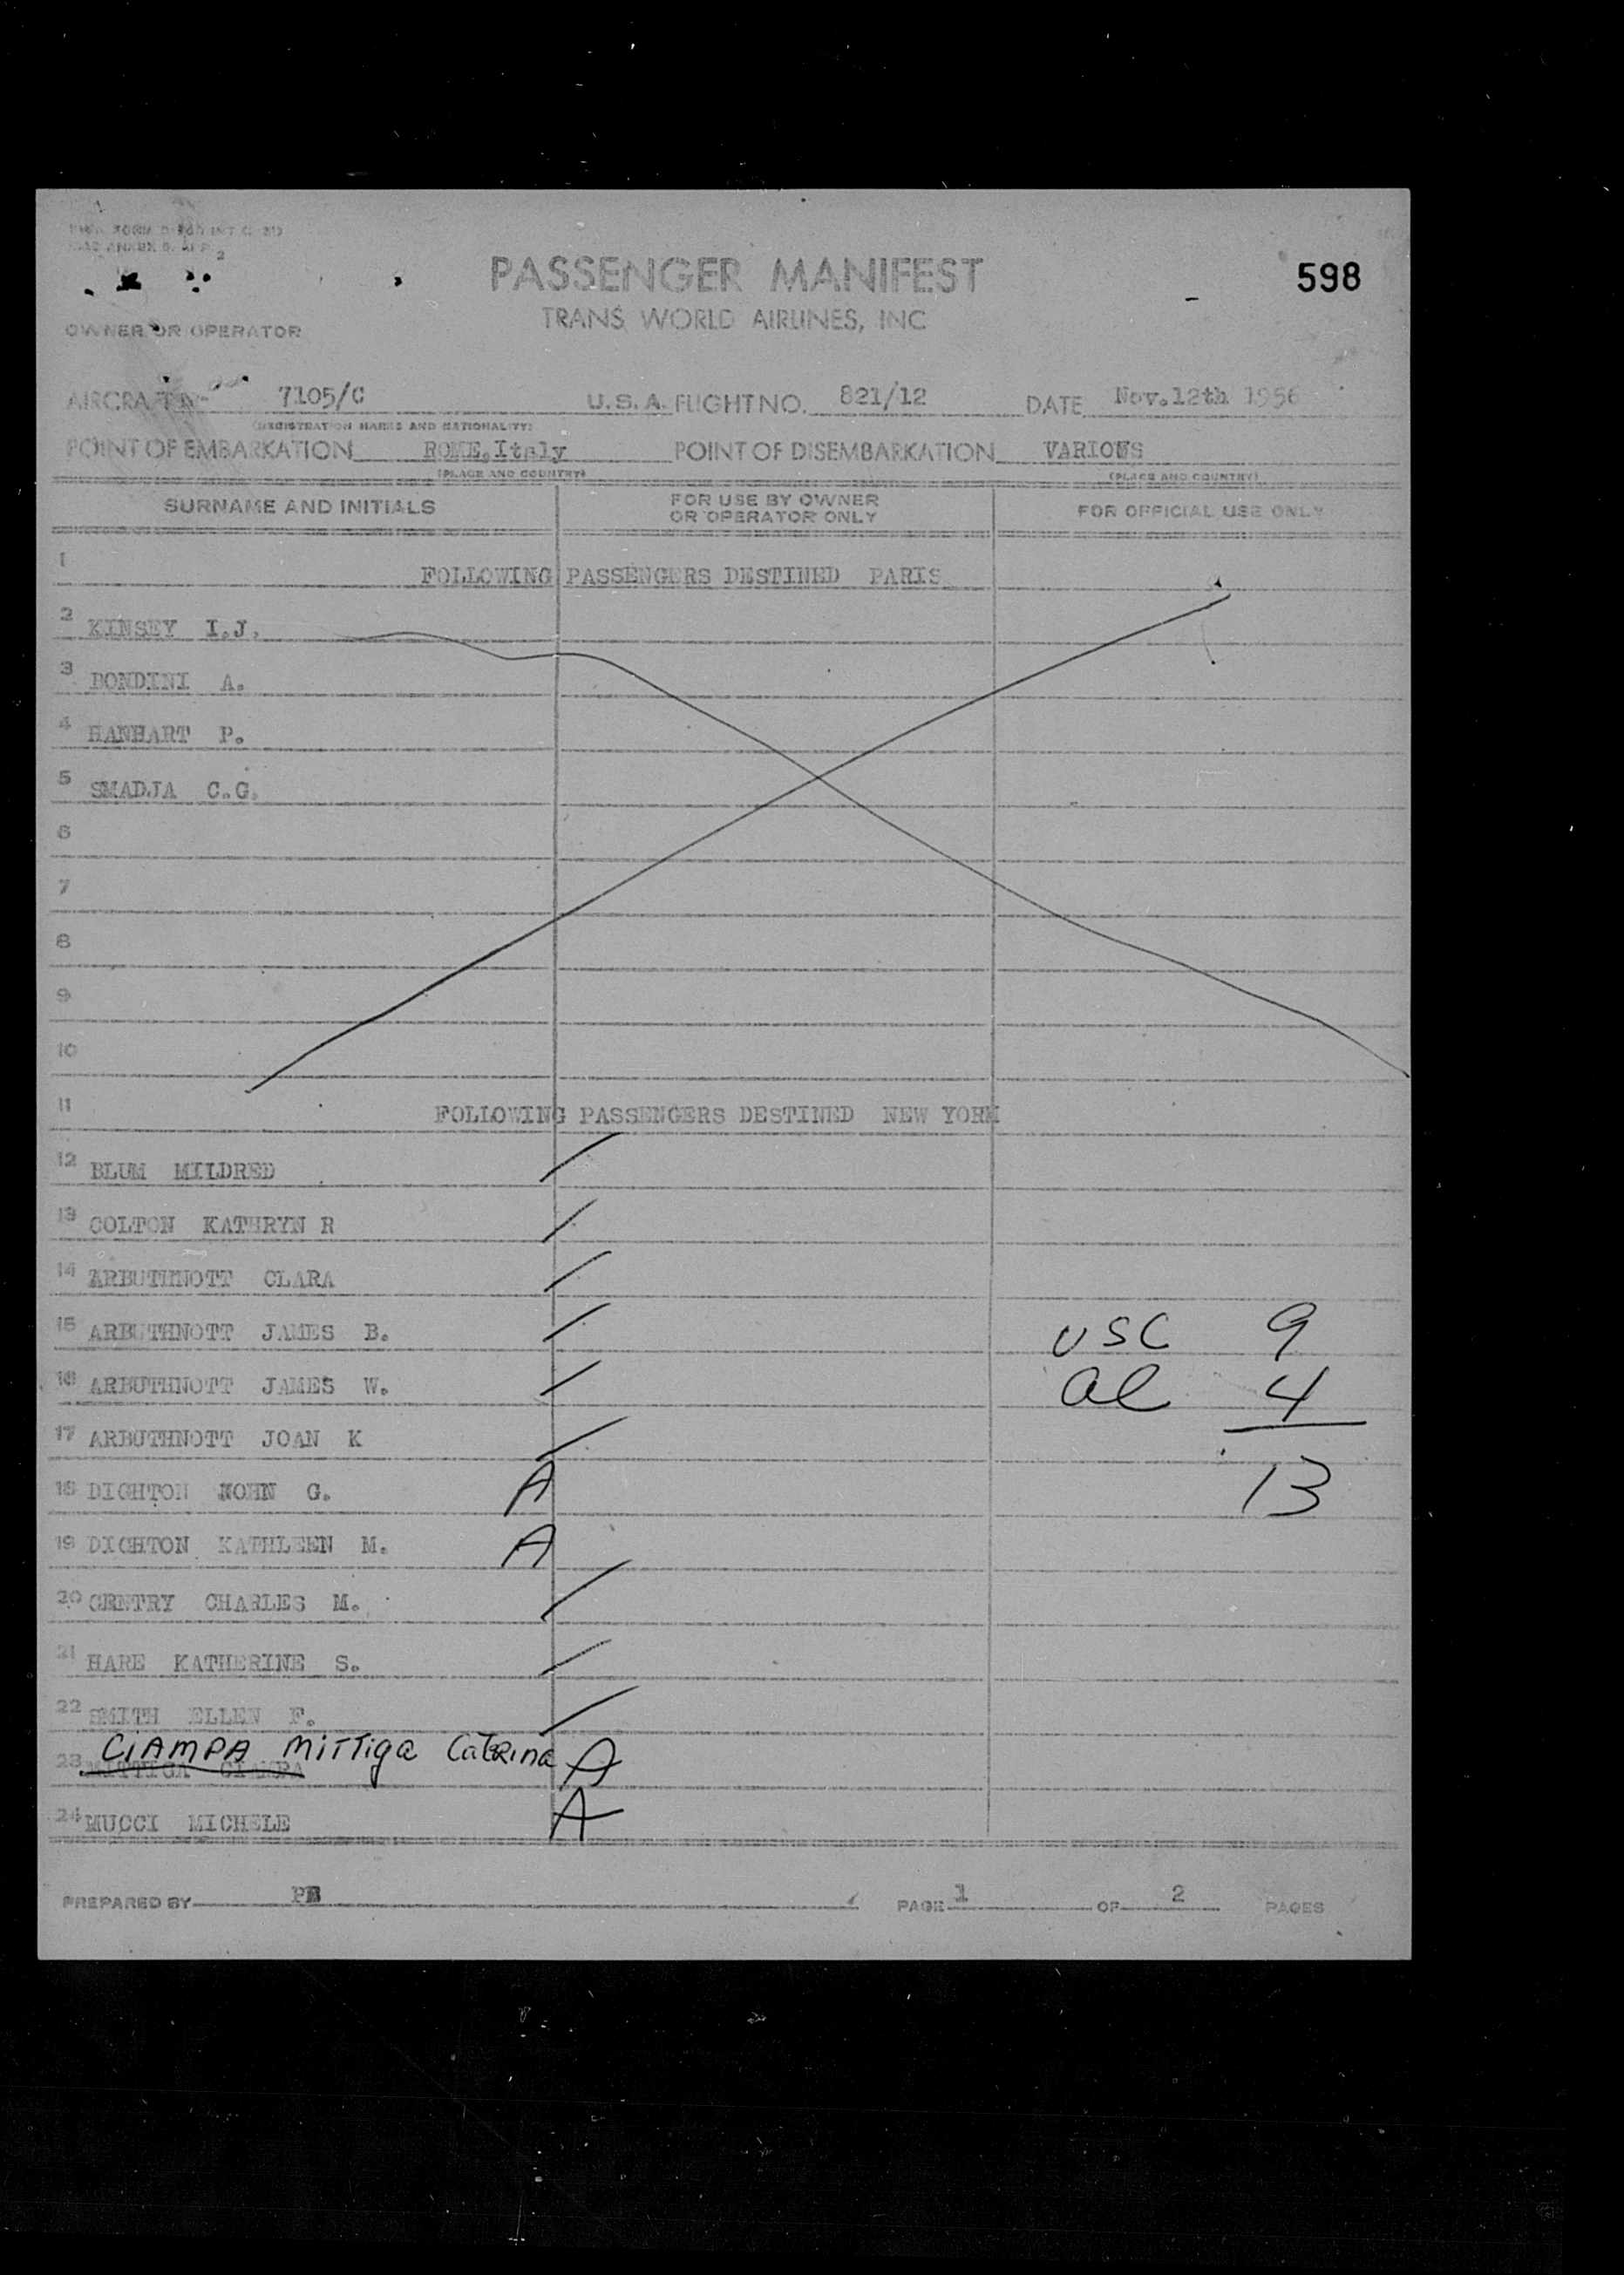 2
PASSENGER MANIFEST
598
TRANS WORLD AIRLINES, INC
OWNER OR OPERATOR
AIRCRAFT 7105/C U.S.A. FLIGHT NO. 821/12 DATE Nov.12th 1956
(REGISTRATION MARKS AND NATIONALITY)
POINT OF EMBARKATION ROME,Italy POINT OF DISEMBARKATION VARIOUS
(PLACE AND COUNTRY) (PLACE AND COUNTRY)
SURNAME AND INITIALS FOR USE BY OWNER OR OPERATOR ONLY FOR OFFICIAL USE ONLY
1 FOLLOWING PASSENGERS DESTINED PARIS
2 KINSEY I.J.
3 BONDINI A.
4 HANHART P.
5 SMADJA C.G.
6
7
8
9
10
11 FOLLOWING PASSENGERS DESTINED NEW YORK
12 BLUM MILDRED
13 COLTON KATHRYN R
14 ARBUTHNOTT CLARA
15 ARBUTHNOTT JAMES B. USC 9
16 ARBUTHNOTT JAMES W. al 4
17 ARBUTHNOTT JOAN K
18 DIGHTON NOHN G. A 13
19 DIGHTON KATHLEEN M. A
20 GENTRY CHARLES M.
21 HARE KATHERINE S.
22 SMITH ELLEN F.
CIAMPA MITTIGA CATERINA A
23 MITTIGA CIAMPA
24 MUCCI MICHELE A
PREPARED BY PAGE 1 OF 2 PAGES